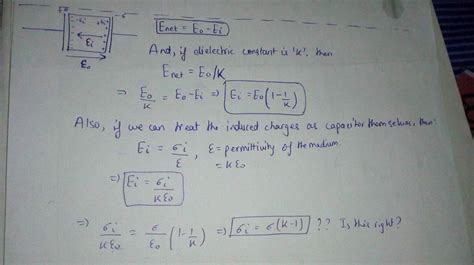 Enet = E₀ - Ei
Ei
E₀
And, if dielectric constant is 'K', then
Enet = E₀/K
⇒ E₀/K = E₀ - Ei ⇒ Ei = E₀(1 - 1/K)
Also, if we can treat the induced charges as capacitor themselves, then:
Ei = σi/ε, ε = permittivity of the medium
= Kε₀
⇒ Ei = σi/Kε₀
⇒ σi/Kε₀ = σ/ε₀ (1 - 1/K) ⇒ σi = σ(K-1) ?? Is this right?